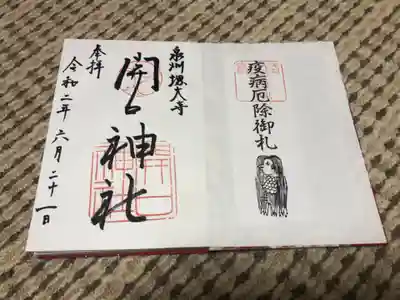 疫病厄除御札
泉州堺大寺
開口神社
奉拝
令和二年六月二十一日